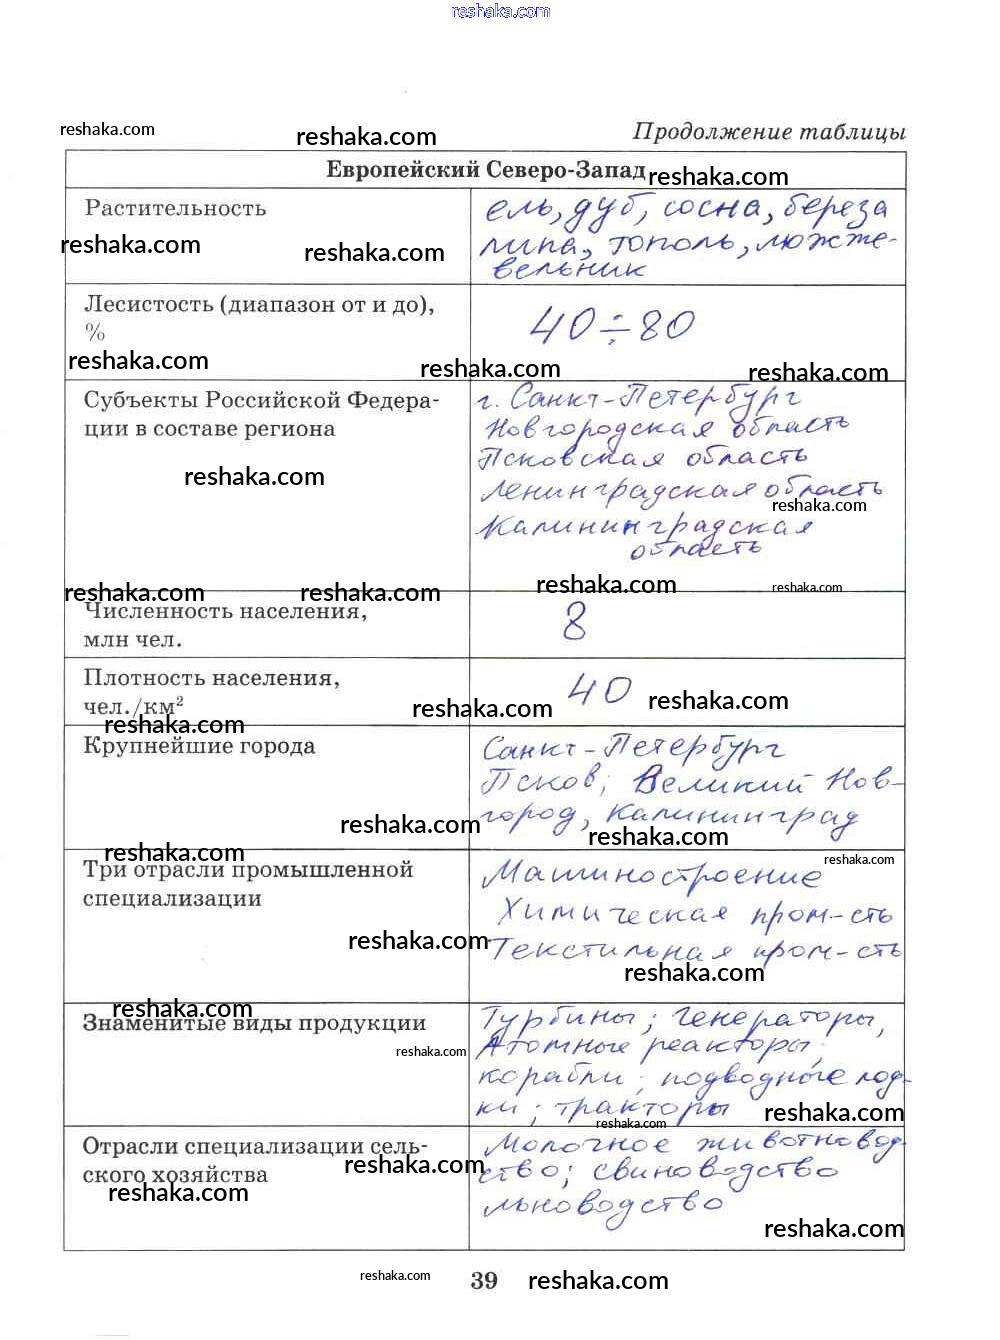 reshaka.com
reshaka.com reshaka.com Продолжение таблицы
Европейский Северо-Запад reshaka.com
Растительность ель, дуб, сосна, береза
reshaka.com reshaka.com липа, тополь, можже-
вельник
Лесистость (диапазон от и до), 40÷80
%
reshaka.com reshaka.com reshaka.com
Субъекты Российской Федера- г. Санкт-Петербург
ции в составе региона Новгородская область
Псковская область
reshaka.com Ленинградская область
reshaka.com
Калининградская
область
reshaka.com reshaka.com reshaka.com reshaka.com
Численность населения, 8
млн чел.
Плотность населения, 40
чел./км² reshaka.com reshaka.com
reshaka.com
Крупнейшие города Санкт-Петербург
Псков; Великий Нов-
город, Калининград
reshaka.com reshaka.com
reshaka.com reshaka.com
Три отрасли промышленной Машиностроение
специализации Химическая пром-сть
reshaka.com Текстильная пром-сть
reshaka.com
reshaka.com
Знаменитые виды продукции Турбины; генераторы,
reshaka.com Атомные реакторы;
корабли; подводные лод-
ки; тракторы reshaka.com
reshaka.com
Отрасли специализации сель- Молочное животновод-
ского хозяйства reshaka.com ство; свиноводство
reshaka.com льноводство
reshaka.com
reshaka.com 39 reshaka.com